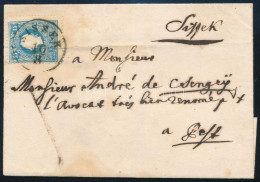 Sissek
a Monsieur
Monsieur André de Csengéÿ
l'Avocat très bien renomé
a Pest